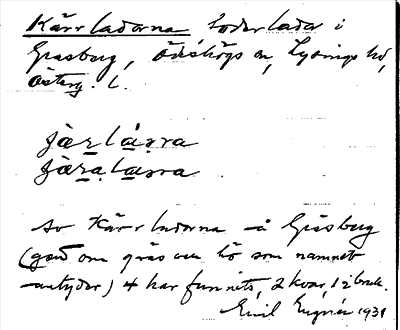 Kärrladorna Foderlador i
Gräsberg, Ödeshögs sn, Lysings hd,
Österg. l.
jærládra
jæraládra
Av Kärrladorna å Gräsberg
(god om gräs och hö som namnet
antyder) 4 har funnits, 2 kvar, 1 i bruk.
Emil 1931